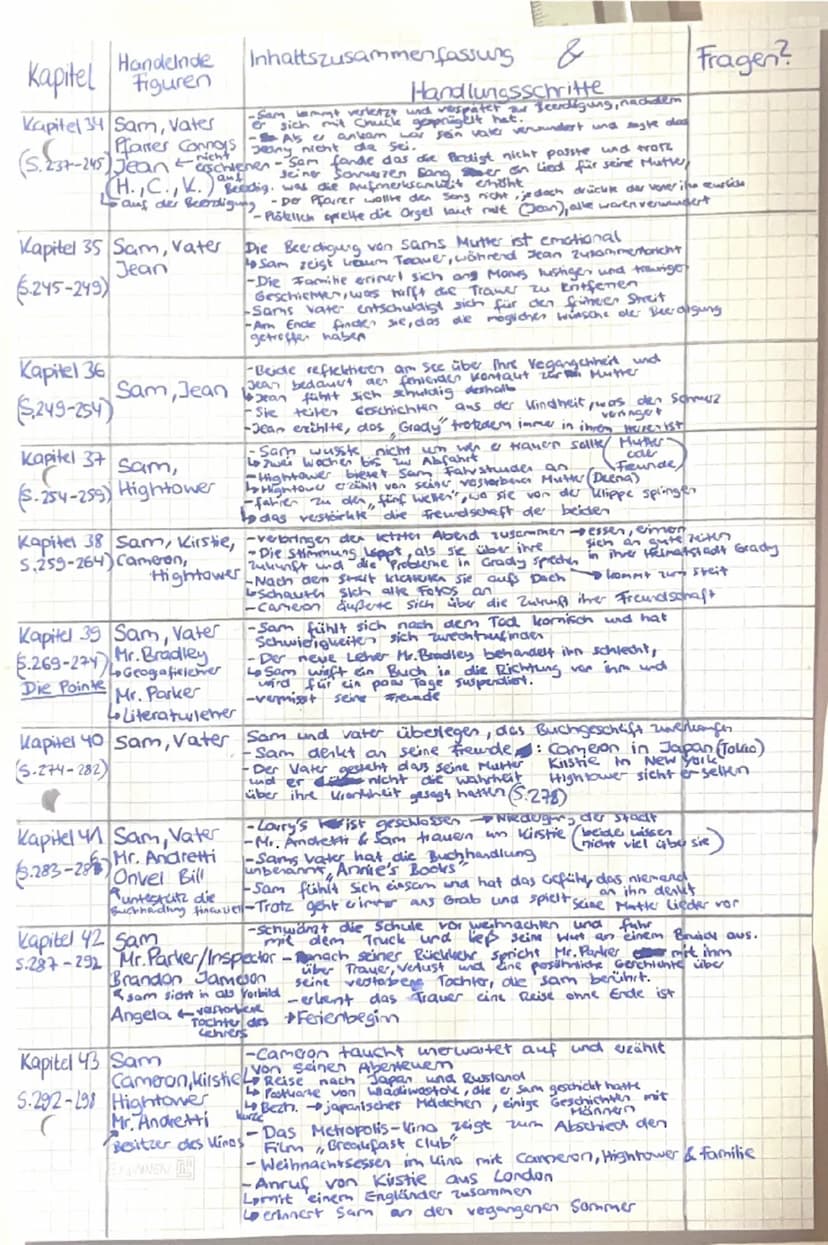 Kapitel
Handelnde Figuren
Inhaltszusammenfassung & Handlungsschritte
Fragen?
Kapitel 34
(S.237-245)
Sam, Vater
Pfarrer Connors
Jean ← nicht erschienen
(H., C., K.) auf Beerdig.
↳ auf der Beerdigung
- Sam kommt verletzt und verspätet zur Beerdigung, nachdem
er sich mit Chuck geprügelt hat.
- Als er ankam war sein Vater verwundert und sagte das
Jeany nicht da sei.
- Sam fande das die Predigt nicht passte und trotz
seiner Schmerzen sang er ein Lied für seine Mutter,
was die Aufmerksamkeit erhöht
- Der Pfarrer wollte den Song nicht, jedoch drückte der Vater ihn zurück
- Plötzlich spielte die Orgel laut mit (Jean), alle waren verwundert
Kapitel 35
(S.245-249)
Sam, Vater
Jean
Die Beerdigung von Sams Mutter ist emotional
↳ Sam zeigt kaum Trauer, während Jean zusammenbricht
- Die Familie erinert sich ang Moms lustigen und traurige
Geschichten, was hilft die Trauer zu entfernen
- Sams Vater entschuldigt sich für den früheren Streit
- Am Ende finden sie, das die möglichen Wünsche der Beerdigung
getroffen haben
Kapitel 36
(S.249-254)
Sam, Jean
- Beide reflektieren am See über Ihre Vegangenheit und
Jean bedauert den fehlenden Kontakt zur Mutter
↳ Jean fühlt sich schuldig deshalb
- Sie teilen Geschichten aus der Kindheit, was den Schmerz
veringert
- Jean erzählte, das „Grady" trotzdem immer in ihren Herzen ist
Kapitel 37
(S.254-259)
Sam,
Hightower
- Sam wusste nicht um wen er trauen sollte (Mutter oder Freunde)
↳ zwei Wochen bis zur Abfahrt
- Hightower bietet Sam Fahrstunden an
↳ Hightower erzählt von seiner vestorbenen Mutter (Deena)
- fahren zu den „fünf Wellen", wo sie von der Klippe springen
↳ das verstärkte die Freundschaft der beiden
Kapitel 38
S.259-264)
Sam, Kirstie,
Cameron,
Hightower
- verbringen den letzten Abend zusammen → essen, erinnern
sich an gute Zeiten
in ihrer Heimatstadt Grady
- Die Stimmung kippt, als sie über ihre
Zukunft und die Probleme in Grady sprechen
→ kommt zum Streit
- Nach dem Streit kletterten sie aufs Dach
↳ Schauten sich alte Fotos an
- Cameron äußerte sich über die Zukunft ihrer Freundschaft
Kapitel 39
(S.269-274)
Die Pointe
Sam, Vater
Mr. Bradley
↳ Geografielehrer
Mr. Parker
↳ Literaturlehrer
- Sam fühlt sich nach dem Tod komisch und hat
Schwierigkeiten sich zurechtzufinden
- Der neue Leher Mr. Bradley behandelt ihn schlecht,
↳ Sam wirft ein Buch in die Richtung von ihm und
wird für ein paar Tage suspendiert.
- vermisst seine Freunde
Kapitel 40
(S.274-282)
Sam, Vater
Sam und Vater überlegen, das Buchgeschäft zu verkaufen
- Sam denkt an seine Freunde: Cameron in Japan (Tokio)
Kirstie in New York
Hightower sieht er selten
- Der Vater gesteht dass seine Mutter
und er nicht die Wahrheit
über ihre Krankheit gesagt hatten (S.278)
Kapitel 41
(S.283-286)
Sam, Vater
Mr. Andretti
Onvel Bill
↑ unterstützt die
Buchhandlung finanziell
- Larry's ist geschlossen → Niedergang der Stadt
- Mr. Andretti & Sam trauern um Kirstie (beide wissen
nicht viel über sie)
- Sams Vater hat die Buchhandlung
umbenannt „Annie's Books"
- Sam fühlt sich einsam und hat das Gefühl, das niemand
an ihn denkt
- Trotz geht er immer ans Grab und spielt seine Mutter Lieder vor
Kapitel 42
S.287-292
Sam
Mr. Parker/Inspector
Brandon Jameson
↑ Sam sieht in als Vorbild
Angela ← verstorbene
Tochter des
Lehrers
- schwänzt die Schule vor Weihnachten und fuhr
mit dem Truck und ließ seine Wut an einem aus.
- nach seiner Rückkehr spricht Mr. Parker mit ihm
über Trauer, Verlust und eine persöhnliche Geschichte über
seine vestorbene Tochter, die Sam berührt.
- erkent das Trauer eine Reise ohne Ende ist
→ Ferienbeginn
Kapitel 43
S.292-298
Sam
Cameron, Kirstie
Hightower
Mr. Andretti
↗
Besitzer des Kinos
- Cameron taucht unerwartet auf und erzählt
von seinen Abenteuern
↳ Reise nach Japan und Russland
↳ Postkarte von Wladiwostok, die er Sam geschickt hatte
↳ kurze Bezh. → japanischer Mädchen, einige Geschichten mit
Männern
- Das Metropolis-Kino zeigt zum Abschied den
Film „Breakfast Club"
- Weihnachtsessen im Kino mit Cameron, Hightower & Familie
- Anruf von Kirstie aus London
↳ mit einem Engländer zusammen
↳ erinnert Sam an den vegangenen Sommer